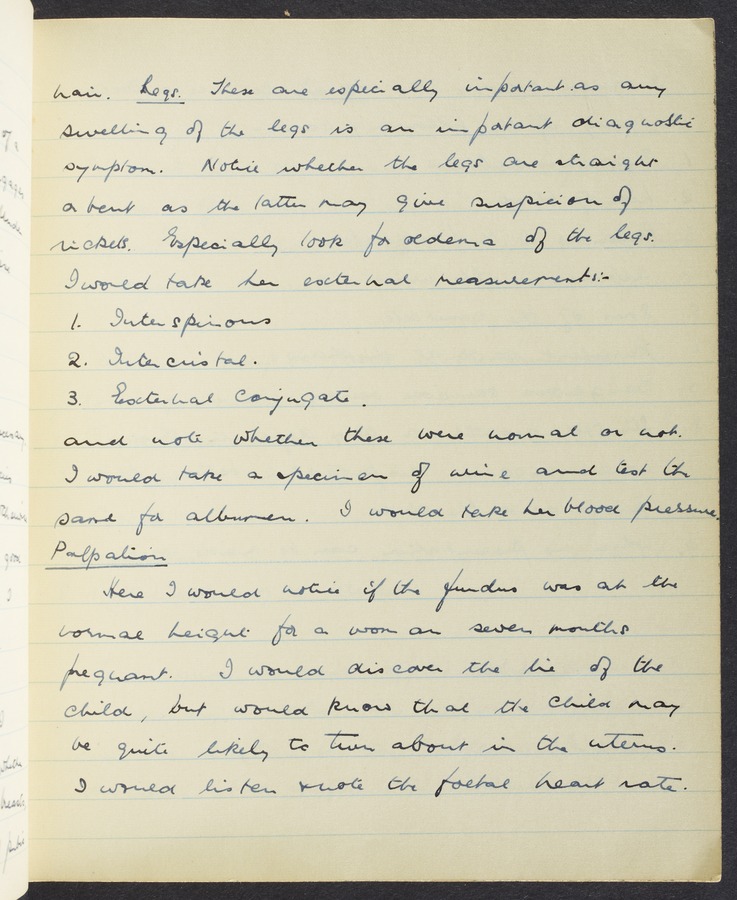 hair. Legs. These are especially important as any
swelling of the legs is an important diagnostic
symptom. Notice whether the legs are straight
or bent as the latter may give suspicion of
rickets. Especially look for oedema of the legs.
I would take her external measurements:-
1. Interspinous
2. Intercristal.
3. External Conjugate.
and note whether these were normal or not.
I would take a specimen of urine and test the
same for albumen. I would take her blood pressure.
Palpation
Here I would notice if the fundus was at the
normal height for a woman seven months
pregnant. I would discover the lie of the
child, but would know that the child may
be quite likely to turn about in the uterus.
I would listen & note the foetal heart rate.